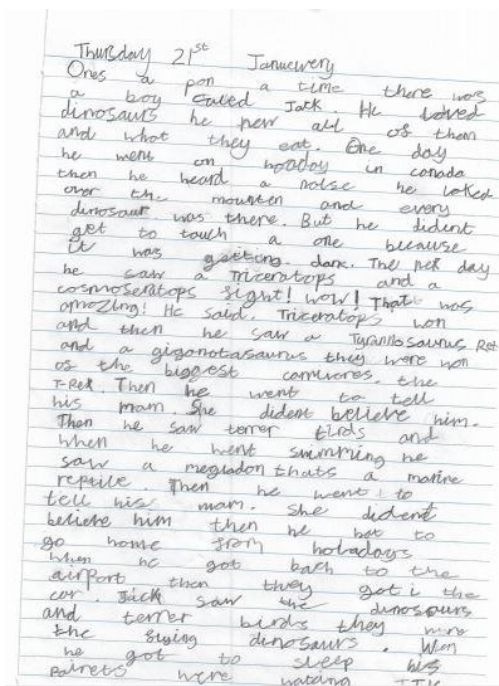 Thursday 21st Januewery
Ones a pon a time there was
a boy called Jack. He loved
dinosaurs he new all of them
and what they eat. One day
he went on hoaday in canada
then he heard a noise he loked
over the mounten and every
dinosaur was there. But he dident
get to touch a one because
it was getting dark. The nex day
he saw a Triceratops and a
cosmoseratops fight! wow! That was
amozing! He said. Triceratops won
and then he saw a Tyrannosaurus Rex
and a gigonotasaurus they were won
of the biggest carnivores. the
T-Rex. Then he went to tell
his mam. She dident believe him.
Then he saw terrer birds and
when he went swimming he
saw a megladon thats a marine
reptile. Then he went to
tell his mam. She dident
believe him then he hat to
go home from holradays
when he got bach to the
airport then they got i the
car. Jack saw the dinosaurs
and terrer birds they were
the flying dinosaurs. Wen
he got to sleep his
parrets were